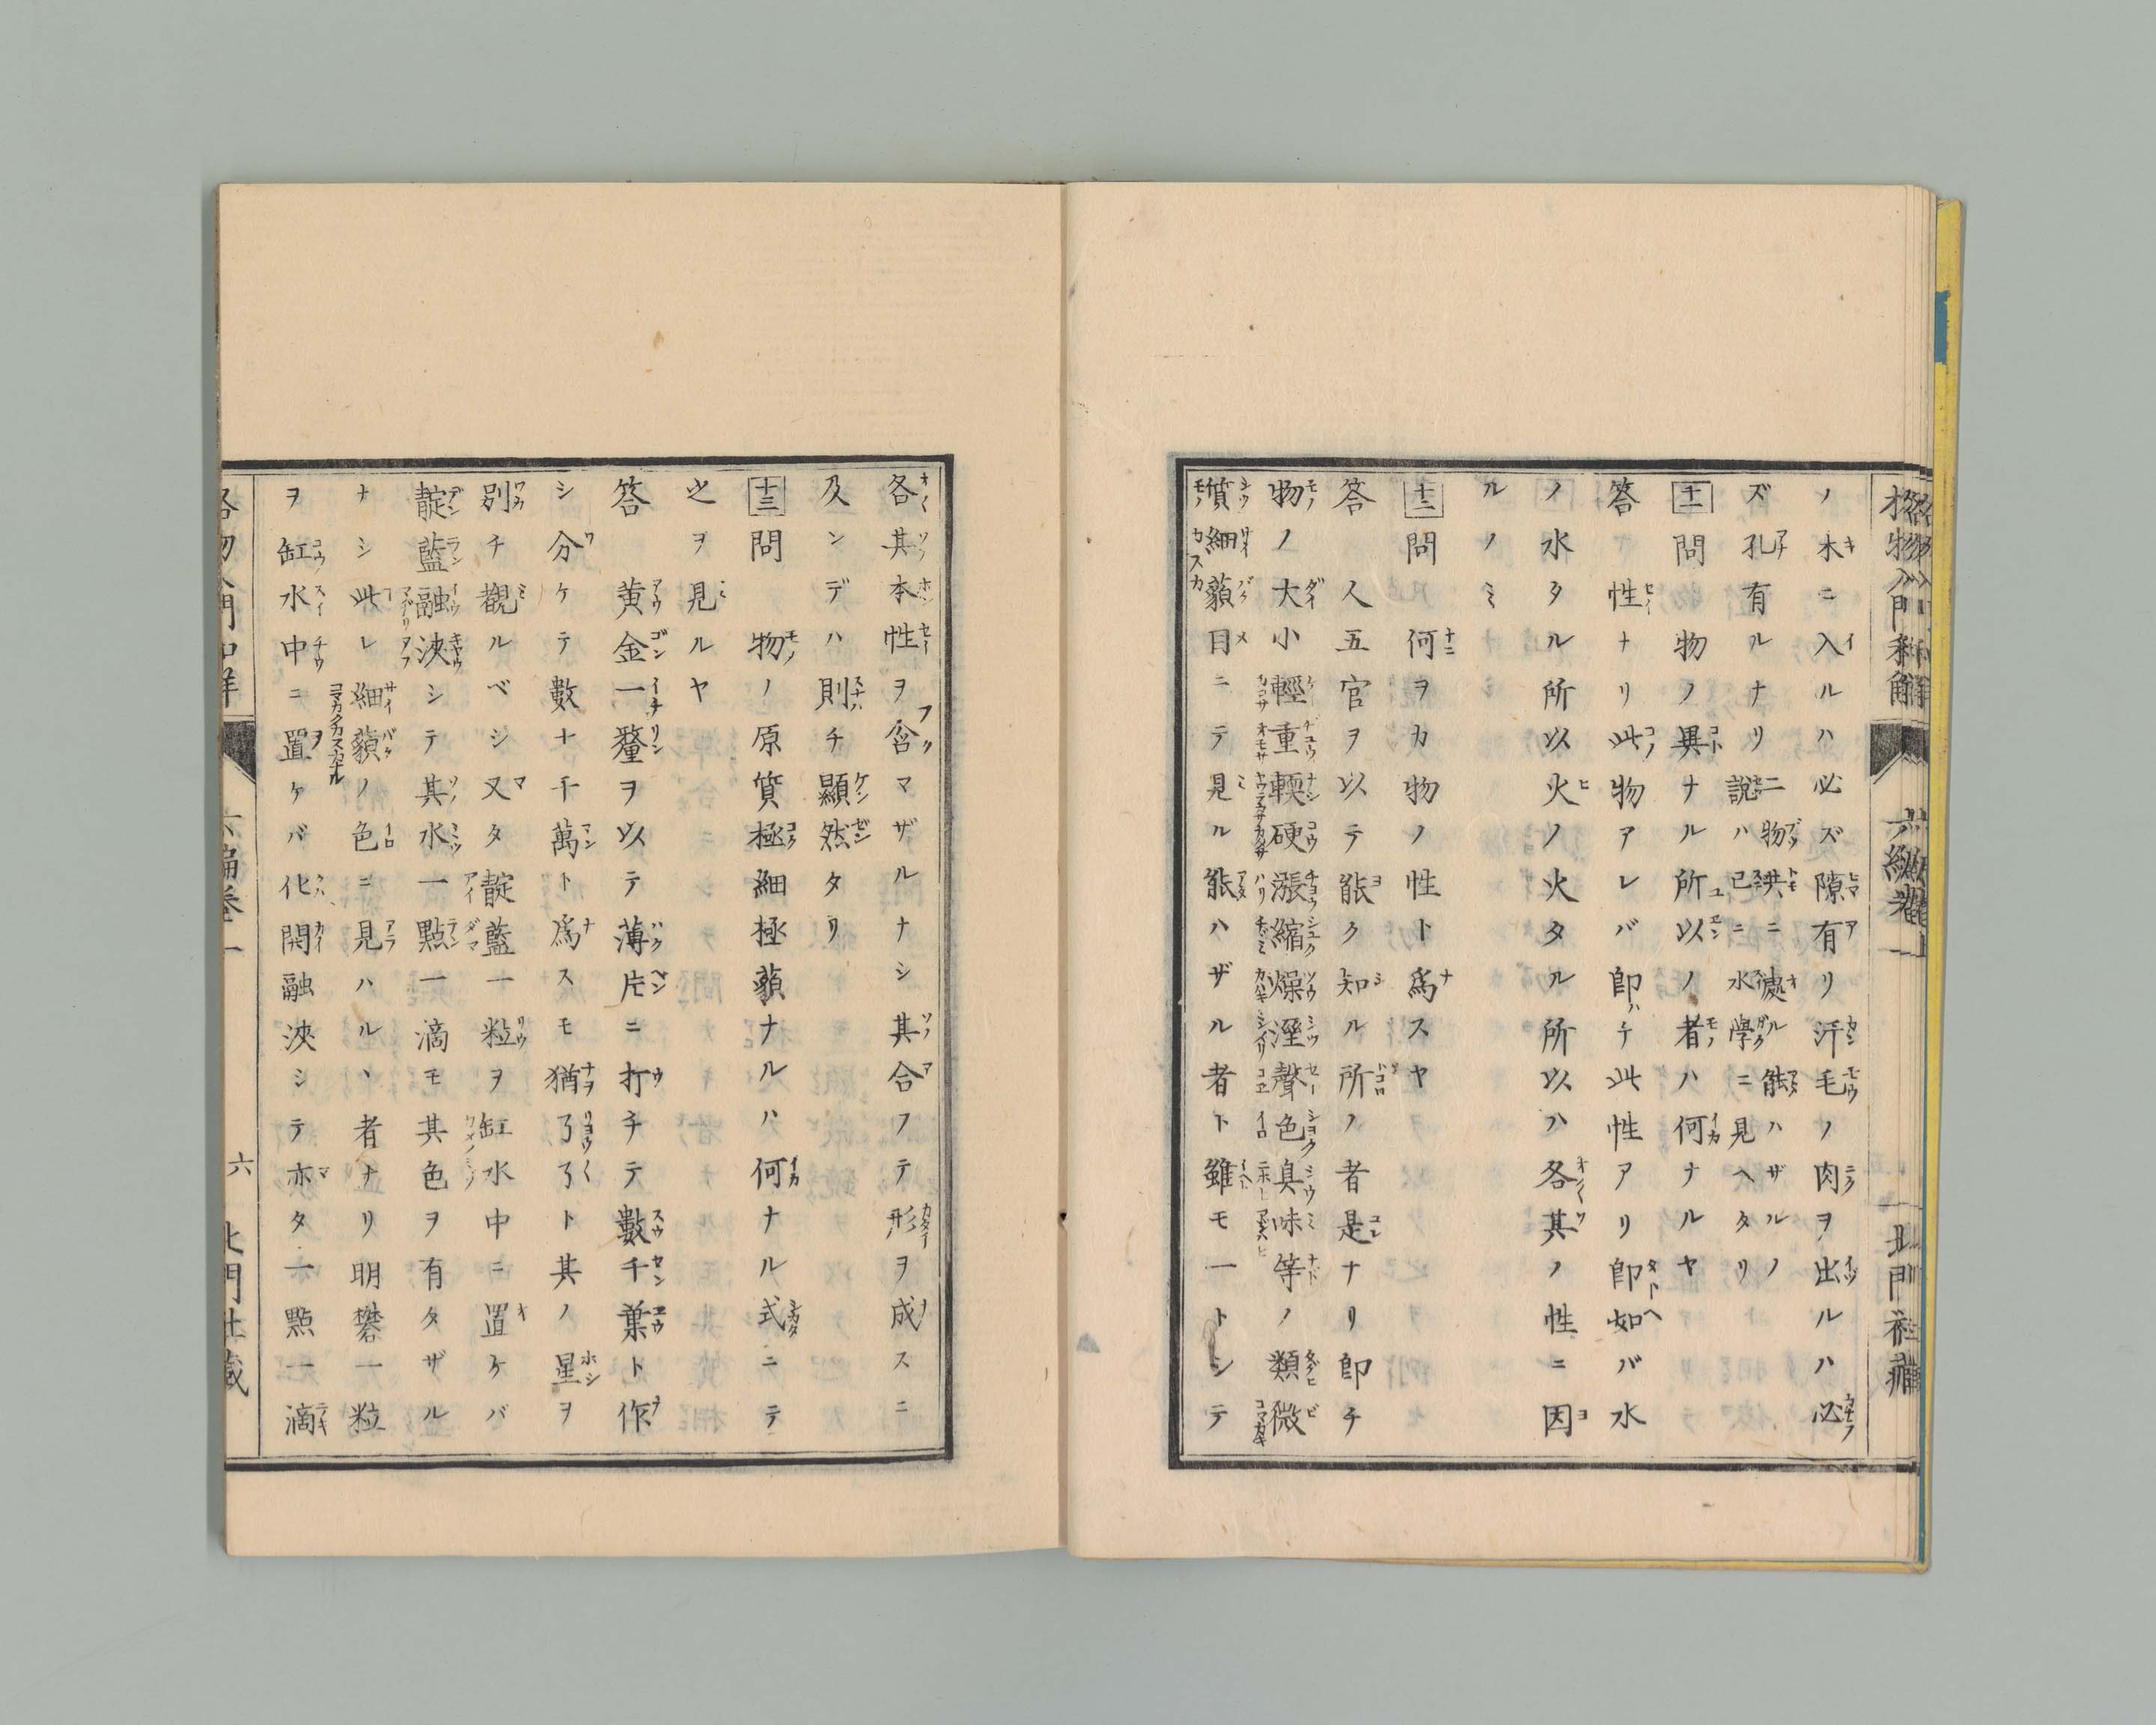 格物入門和解
六編卷一
北門社藏
ノ木ニ入ルハ必ズ隙有リ汗毛ノ肉ヲ出ルハ必
ズ孔有ルナリ二物共ニ處ル能ハザルノ
說ハ已ニ水學ニ見ヘタリ
十一問物ノ異ナル所以ノ者ハ何ナルヤ
答 性ナリ此物アレバ即チ此性アリ即如バ水
ノ水タル所以火ノ火タル所以ハ各其ノ性ニ因
ルノミ
十二問 何ヲカ物ノ性ト爲スヤ
答 人五官ヲ以テ能ク知ル所ノ者是ナリ即チ
物ノ大小輕重輭硬漲縮燥溼聲色臭味等ノ類微
質細藐目ニテ見ル能ハザル者ト雖モ一トシテ
各其本性ヲ含マザルナシ其合フテ形ヲ成スニ
及ンデハ則チ顯然タリ
十三問 物ノ原質極細極藐ナルハ何ナル式ニテ
之ヲ見ルヤ
答 黄金一釐ヲ以テ薄片ニ打チテ數千葉ト作
シ分ケテ數十千萬ト爲スモ猶了了ト其ノ星ヲ
別チ觀ルベシ又タ靛藍一粒ヲ缸水中ニ置ケバ
靛藍融浹シテ其水一點一滴モ其色ヲ有タザル
ナシ此レ細藐ノ色ニ見ハルヽ者ナリ明礬一粒
ヲ缸水中ニ置ケバ化開融浹シテ亦タ一點一滴
格物入門和解
六編卷一
六
北門社藏